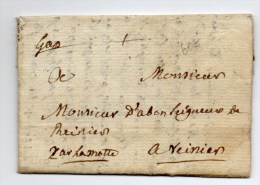 Gap
A Monsieur
Monsieur d'abon Seigneur de
Reinier
par la motte A reinier